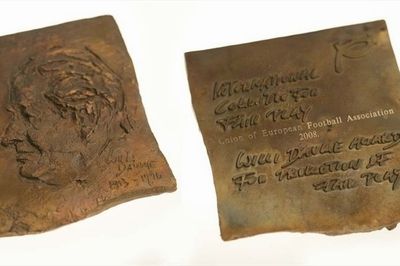 WILLI
DAUME
1913-1996
INTERNATIONAL
COMMITTEE FOR
FAIR PLAY
Union of European Football Association
2008.
WILLI DAUME AWARD
FOR PROMOTION OF
FAIR PLAY